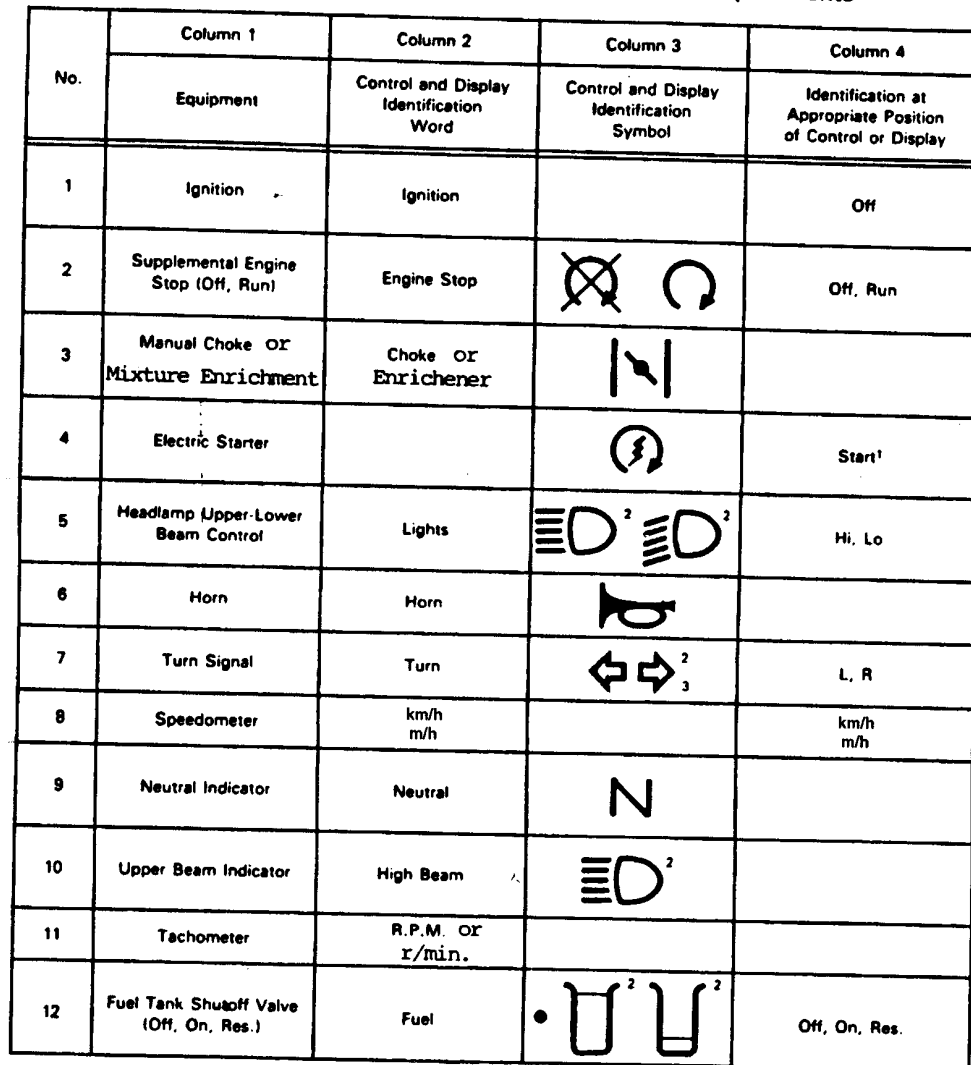 No.
Column 1
Column 2
Column 3
Column 4
Equipment
Control and Display
Identification
Word
Control and Display
Identification
Symbol
Identification at
Appropriate Position
of Control or Display
1
Ignition
Ignition
Off
2
Supplemental Engine
Stop (Off, Run)
Engine Stop
Off, Run
3
Manual Choke or
Mixture Enrichment
Choke or
Enrichener
4
Electric Starter
Start¹
5
Headlamp Upper-Lower
Beam Control
Lights
2
2
Hi, Lo
6
Horn
Horn
7
Turn Signal
Turn
2
3
L, R
8
Speedometer
km/h
m/h
km/h
m/h
9
Neutral Indicator
Neutral
N
10
Upper Beam Indicator
High Beam
2
11
Tachometer
R.P.M. or
r/min.
12
Fuel Tank Shutoff Valve
(Off, On, Res.)
Fuel
2
2
Off, On, Res.